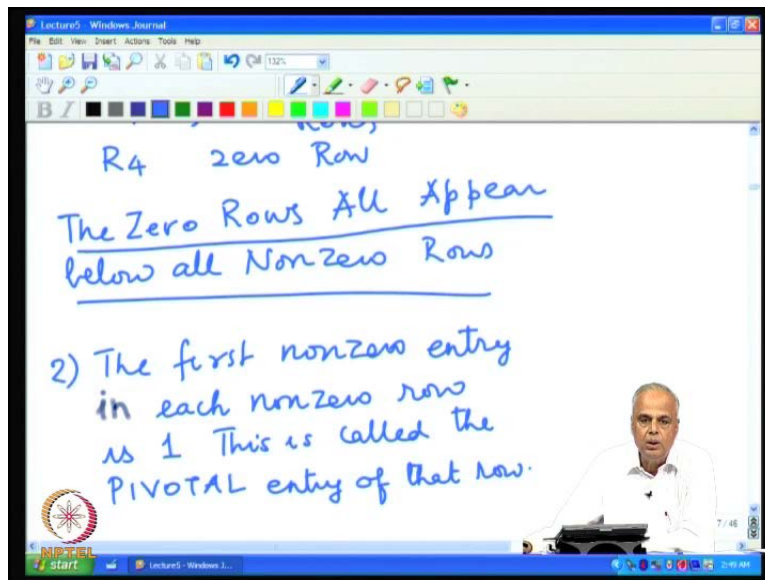 Lecture5 - Windows Journal
File Edit View Insert Actions Tools Help
132%
B I
Rows
R4 zero Row
The Zero Rows All Appear
below all Nonzero Rows
2) The first nonzero entry
in each nonzero row
is 1 This is called the
PIVOTAL entry of that row.
7 / 46
NPTEL
start Lecture5 - Windows J... 2:49 AM